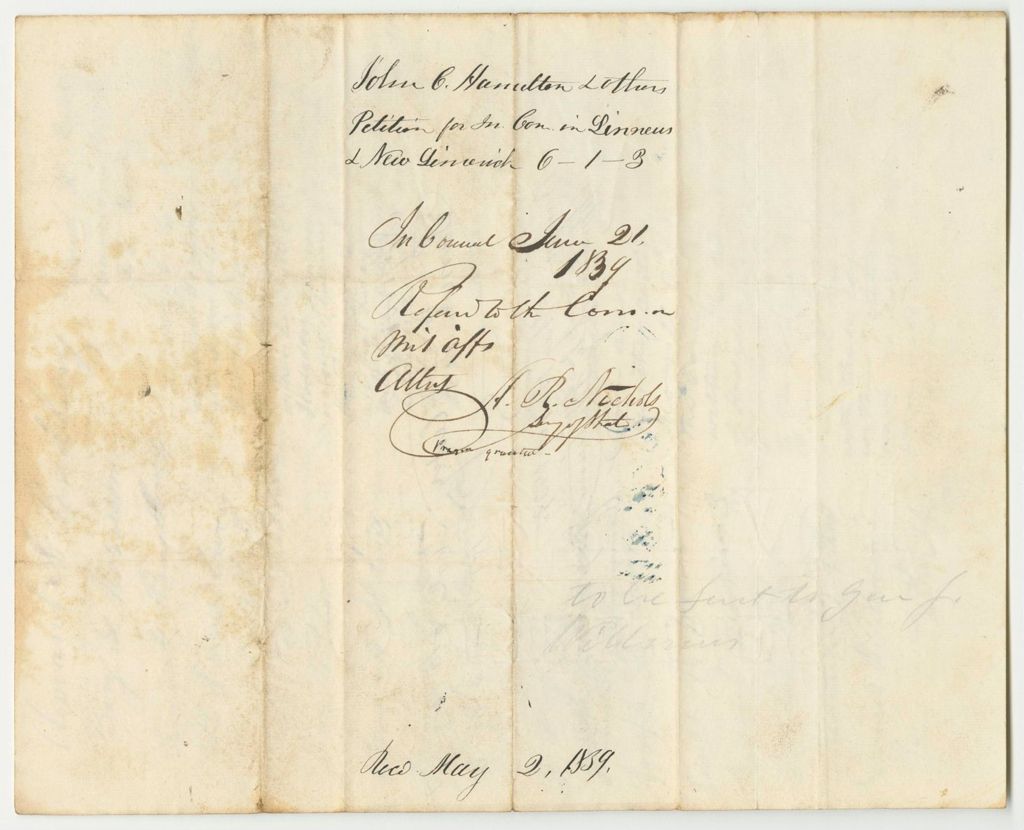 John C. Hamilton & others
Petition for In. Com. in Linneus
& New Limerick 6-1-3
In Council June 21.
1839
Referred to the Com. on
Mil affs
Attest
A. R. Nichols
Secy of State
Prayer granted-
to be sent to Gen J.
Recd May 2, 1839.